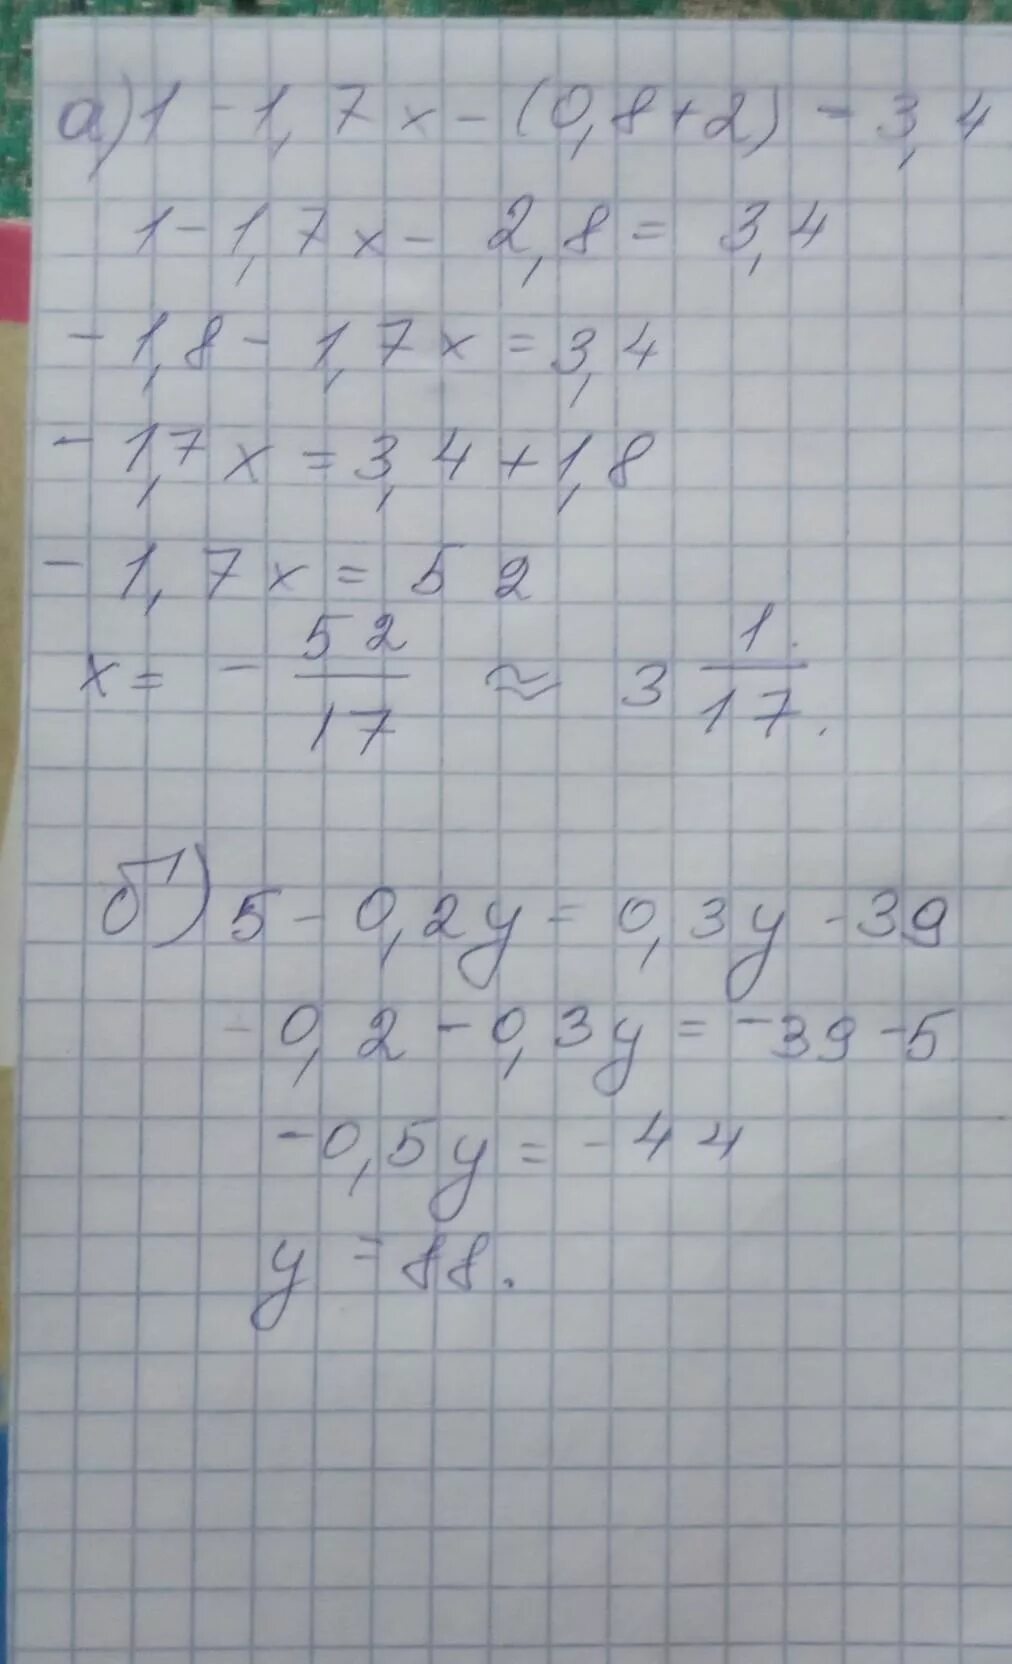 а) 1 - 1,7x - (0,8+2) = 3,4
1 - 1,7x - 2,8 = 3,4
- 1,8 - 1,7x = 3,4
- 1,7x = 3,4 + 1,8
- 1,7x = 52
x = - 52/17 ≈ 3 1/17.
б) 5 - 0,2y = 0,3y - 39
- 0,2 - 0,3y = -39 - 5
-0,5y = -44
y = 88.